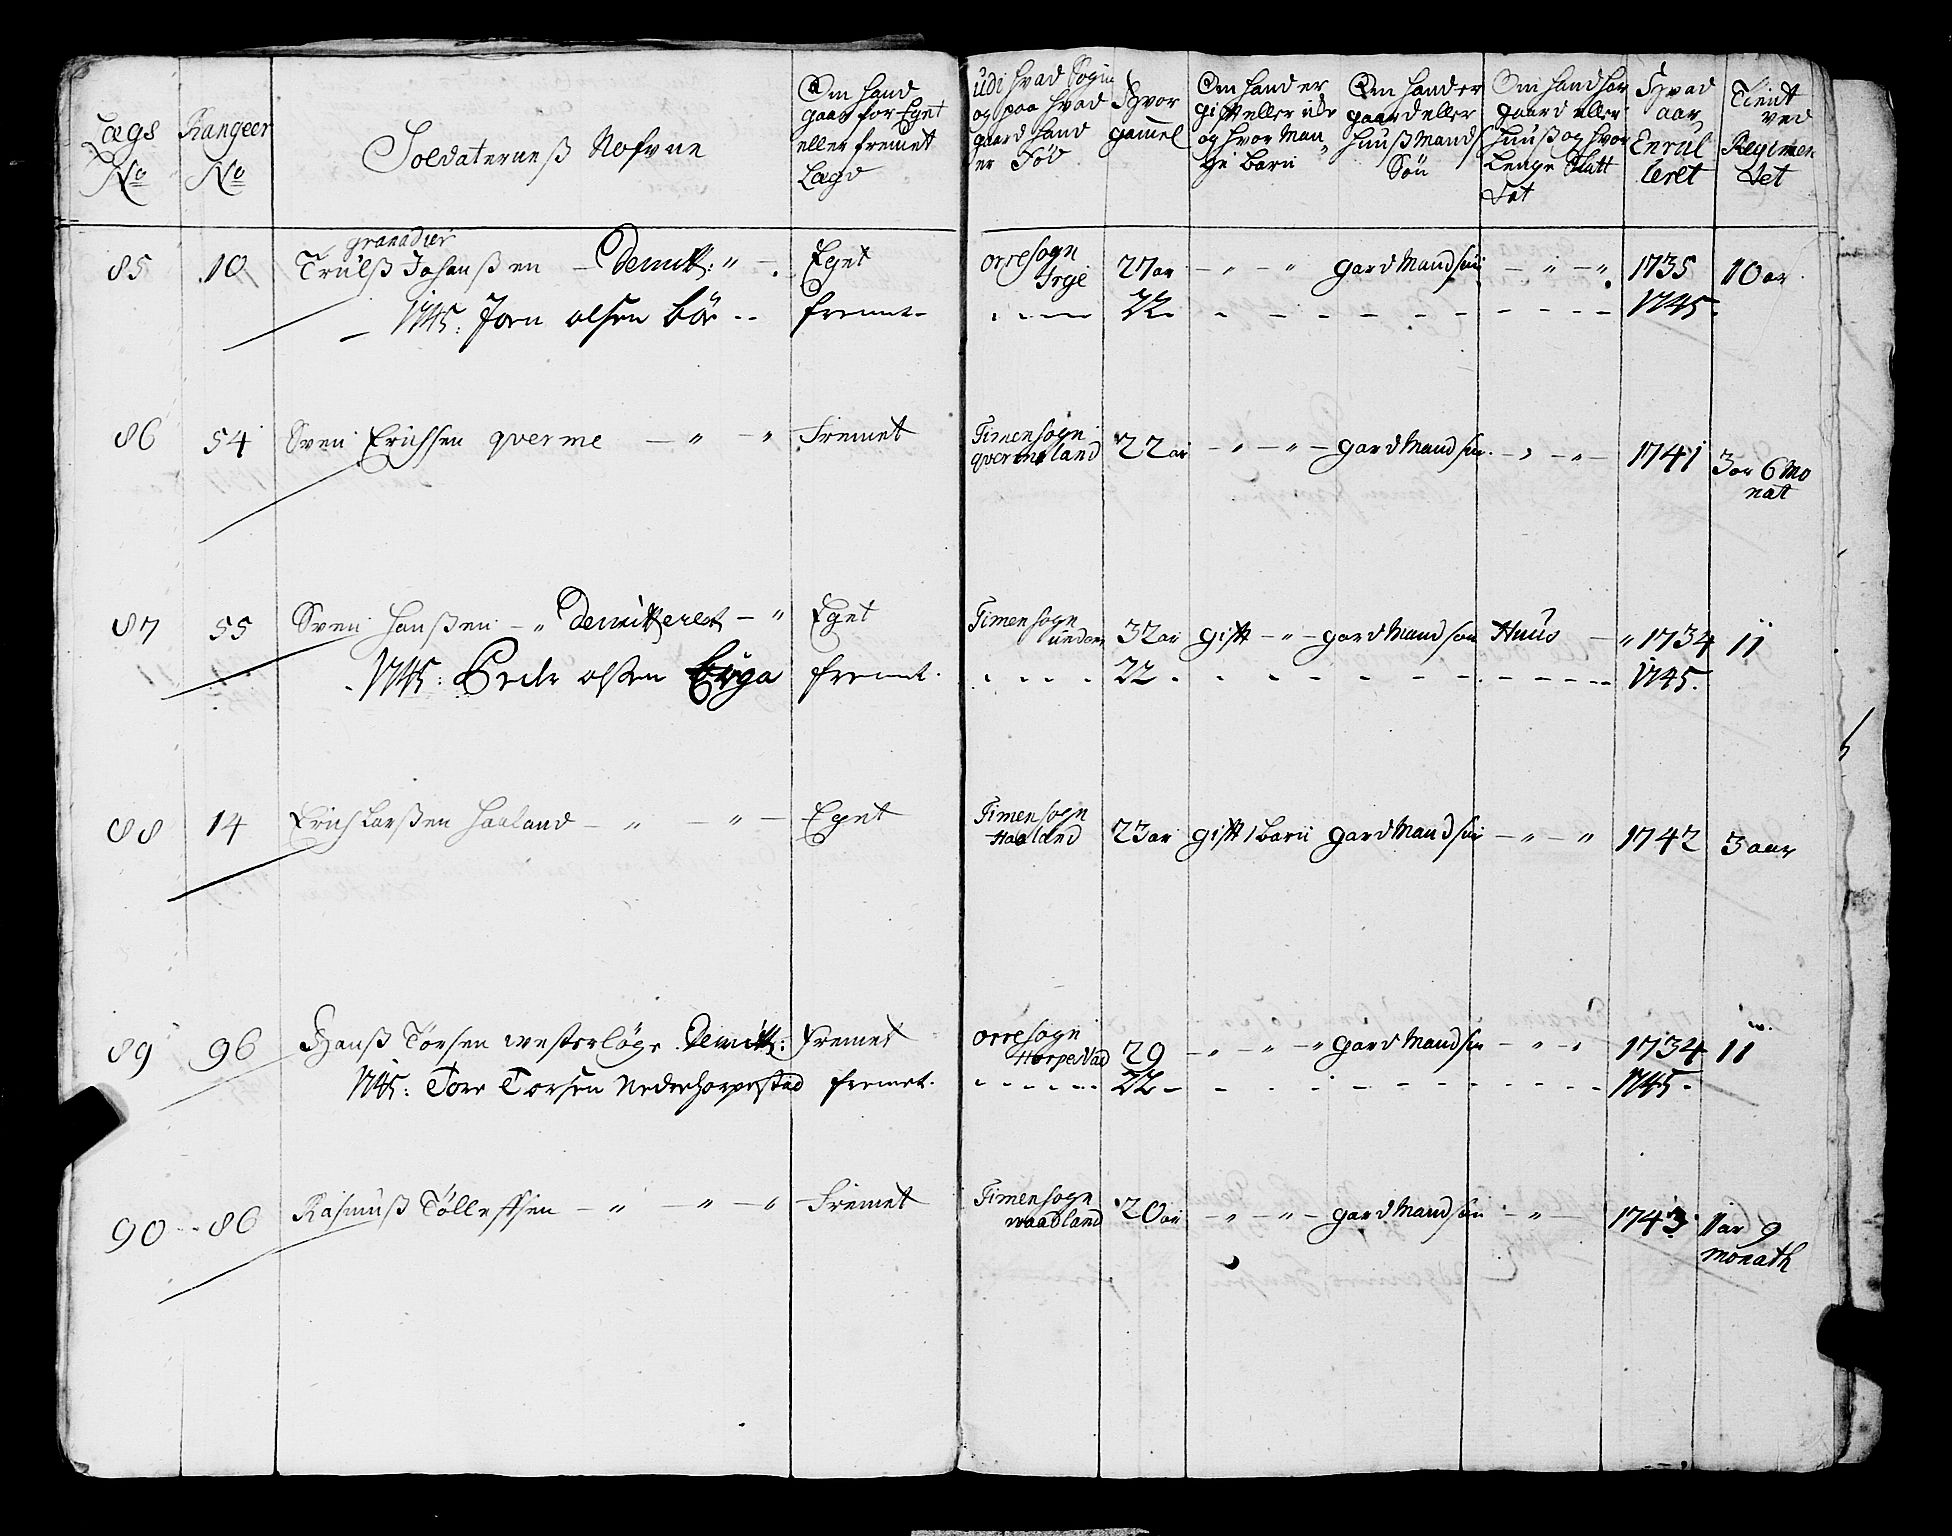 Lægs No
Rangeer No
Soldaterneß Nafvne
Om hand gaar for Eget eller fremet Lægd
udi hvad Sogn og paa hvad gaard hand er Föd
Hvor gamel
Om hand er gift eller ide og hvor Mange barn
Om hand er gaard eller huuß Mands Sön
Om hand har gaard eller huuß og hvor Lenge Siatt Sat
Hvad aar Enrulleret
Tient ved Regimentet
granadier
85 10 Trulß Johanßen — Demitt: " — Eget orre sogn Irge 27 ar — " — " gardMandsön — " — " 1735 10 ar
1745: Jorn olsen Bör -- fremt - - - - - 22 - - - - - - - - - 1745.
86 54 Sven Erichsen qverme — " — " Fremet Timen sogn qvermeland 22 ar — " — " — gardMandsön — " — " — 1741 3 ar 6 Monat
87 55 Sven Hanßen — " Demitteret — " Eget Timen sogn undem 32 ar gift — " — gardMandsön Huus — " 1734 11
1745: Peder olsen Erga fremt. - - - - 22 - - - - - - - - - - 1745.
88 14 Erich Larßen Haaland — " — " — Eget Timen sogn Haaland 23 ar gift 1 barn gardMandsön — " — " 1742 3 aar
89 96 Hanß Torsen westerløge Demitt: Fremet orre sogn Horpestad 29 — " — " — " gardMandsön — " — " 1734 11
1745: Tore Torsen Nederhorpestad fremet. - - - - - 22 - - - - - - - - - 1745 -
90 86 Rasmuß Tölleffsen — " — " — " Fremet Timen sogn waadland 20 ar — " — " — gardMandsön — " — 1743 1 ar 9 monath